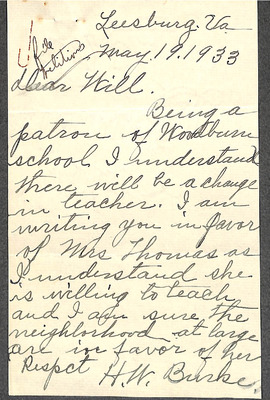 Leesburg. Va.
File
Petitions
May. 19. 1933
Dear Will.
Being a
patron of Woodburn
school I understand
there will be a change
in teacher. I am
writing you in favor
of Mrs Thomas as
I understand she
is willing to teach
and I am sure the
neighborhood at large
are in favor of her
Respct
H. W. Burke.